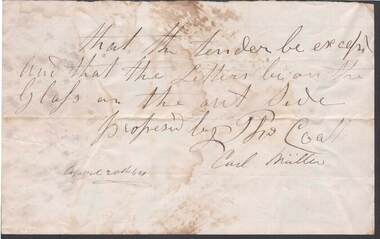 that the tender be excepd
and that the Letters be on the
Glass on the out Side
Proposed by Thos Coall
Carl Müller